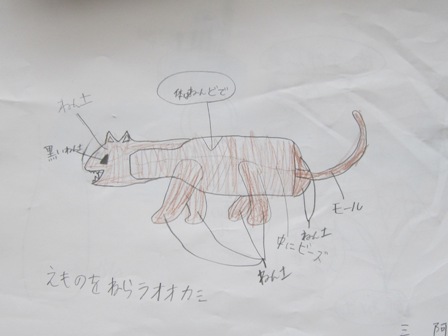 ねん土
体はねんどで
黒いねん土
モール
ねん土
中にビーズ
ねん土
えものをねらうオオカミ
三 阿